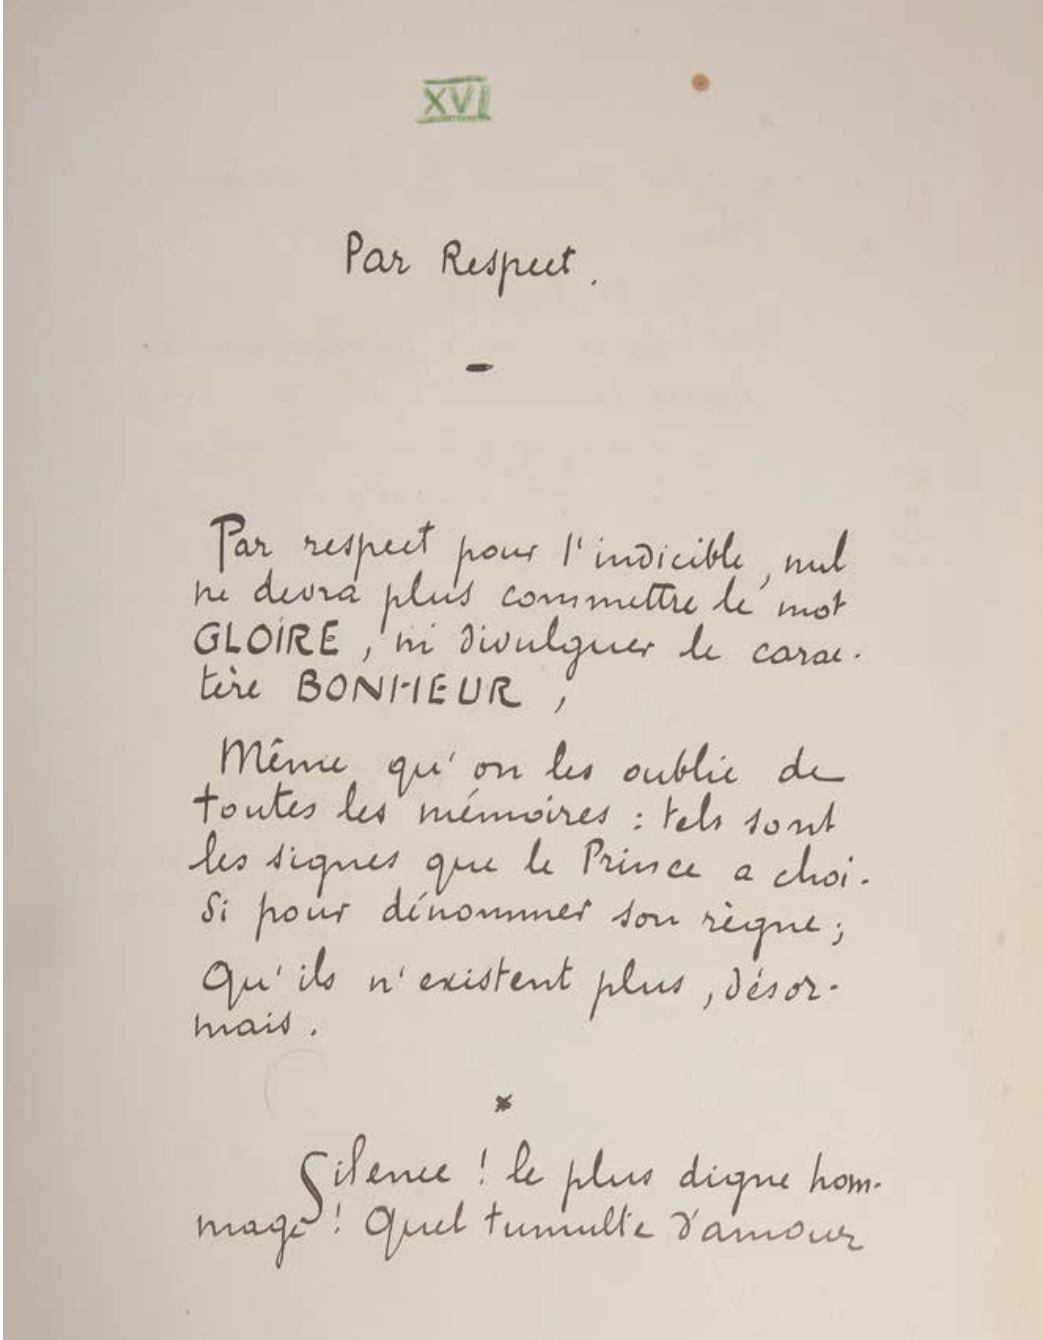 XVI
Par Respect.
-
Par respect pour l'indicible, nul
ne devra plus commettre le mot
GLOIRE, ni divulguer le carac-
tère BONHEUR,
Même qu'on les oublie de
toutes les mémoires : tels sont
les signes que le Prince a choi-
si pour dénommer son règne;
Qu'ils n'existent plus, désor-
mais.
*
Silence ! le plus digne hom-
mage ! Quel tumulte d'amour